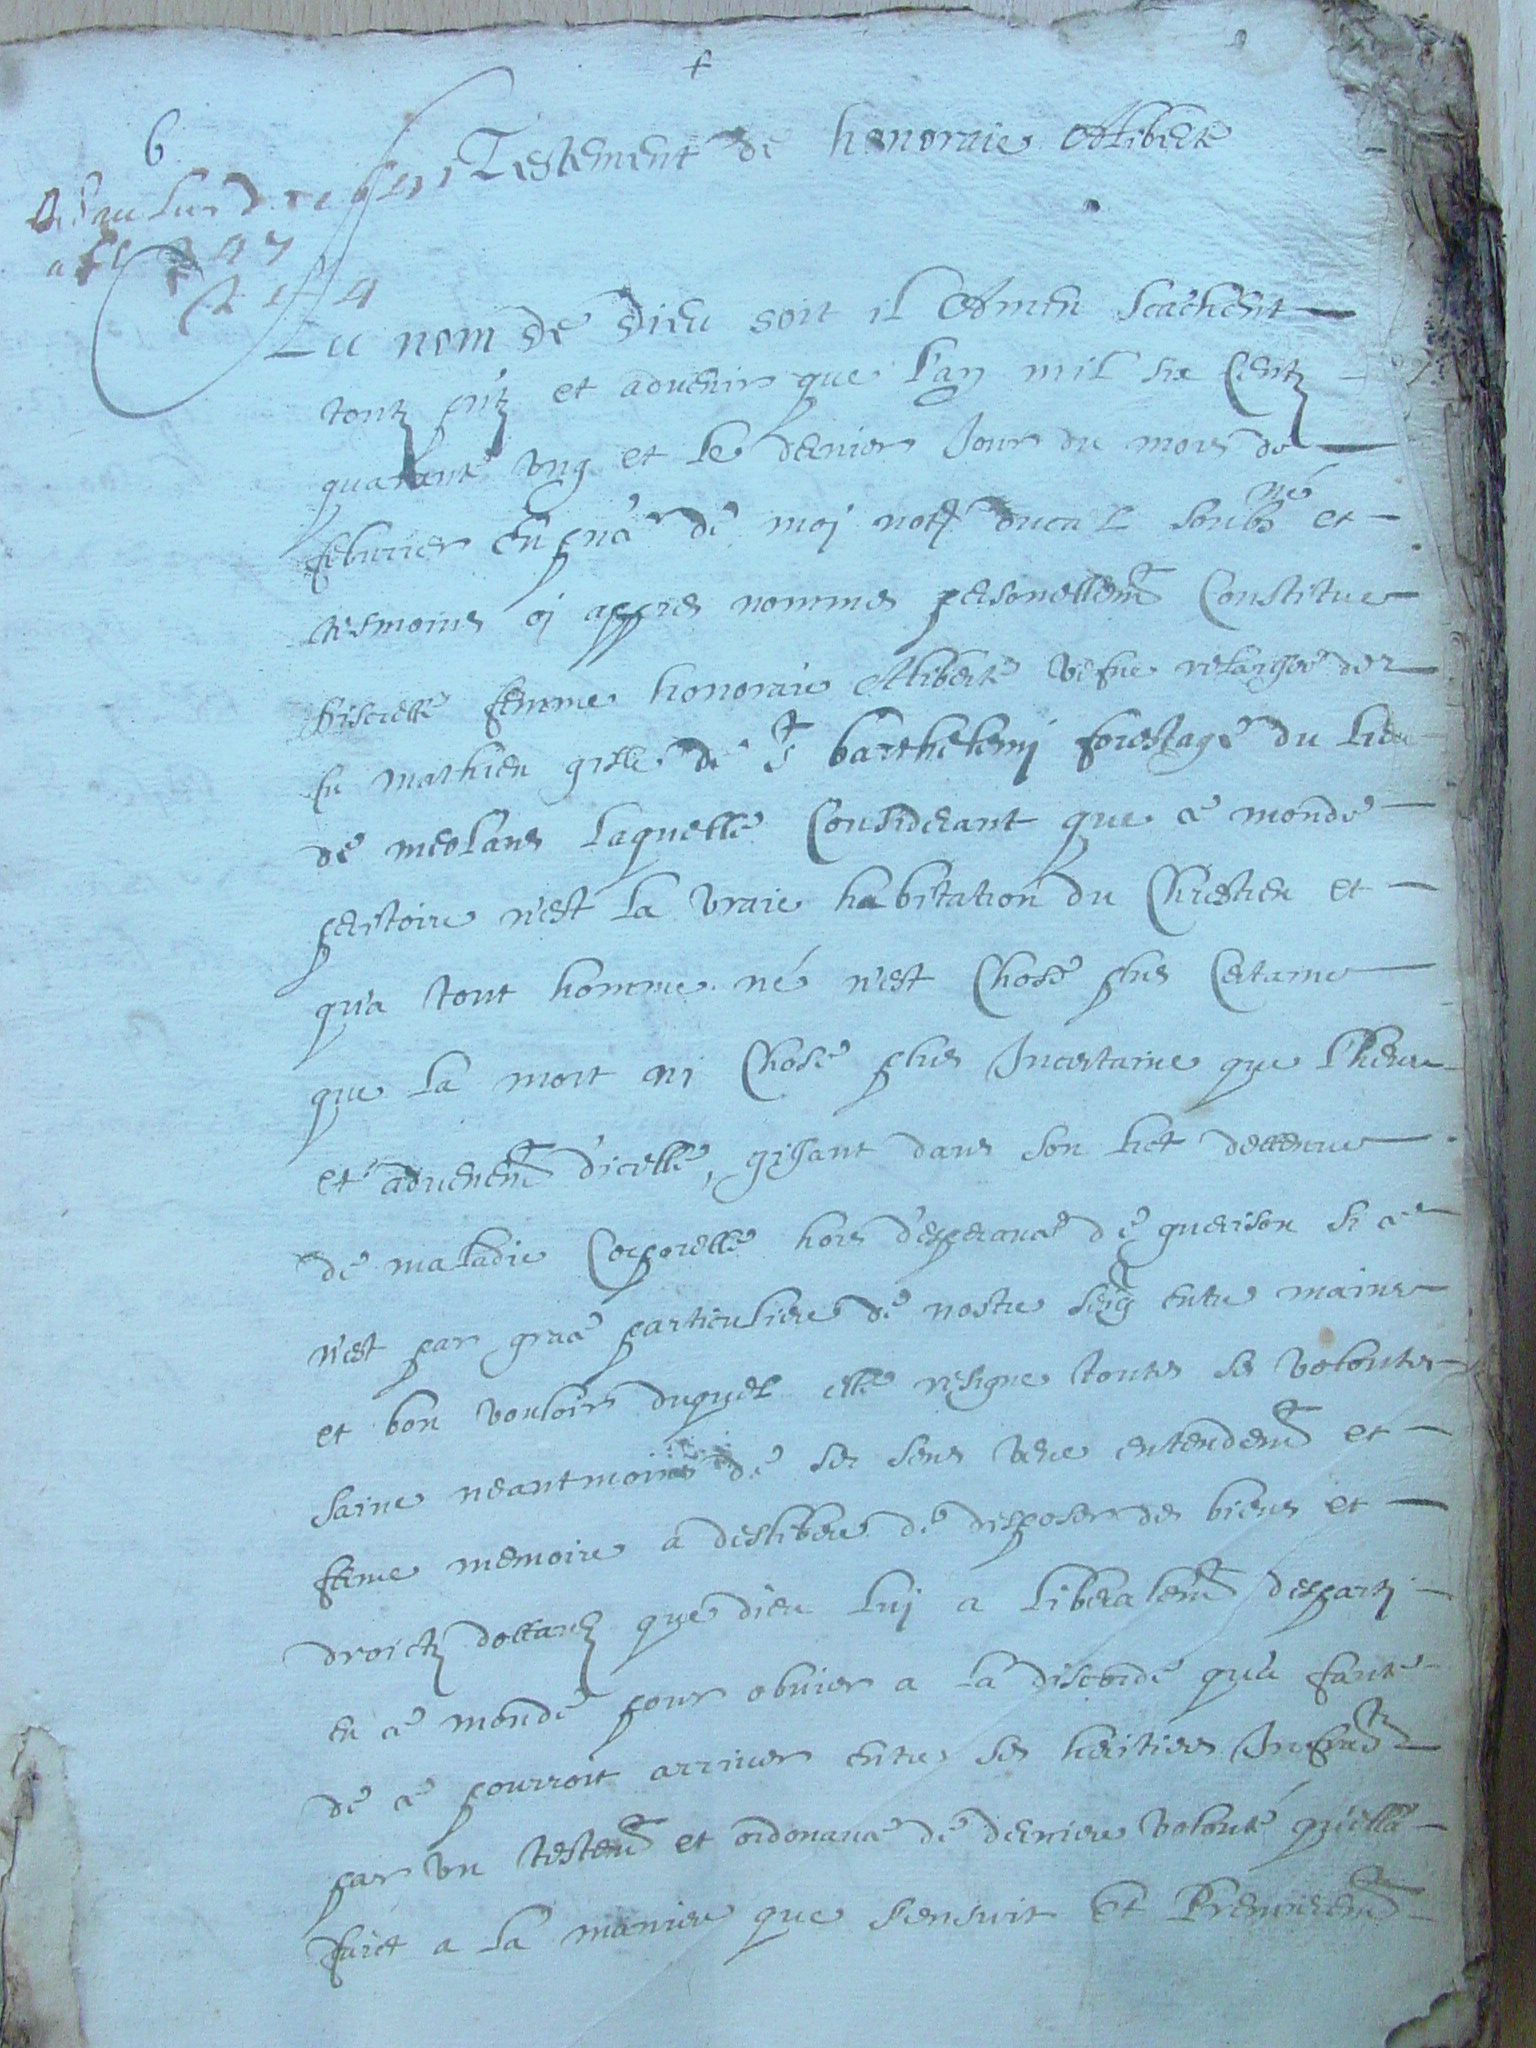 6
Testement de honoraie Aliberte
Au nom de dieu soit il Amen scachent
toutz pntz et advenir que l'an mil six Centz
quarante ung et le dernier Jour du mois de
febvrier en pnce de moi notre ducal soubsne et
tesmoins cj appres nommes personellemt Constitue
discrette femme honoraie Aliberte vefue relaissee de
fu mathieu gille de st barthelemj forestage du lieu
de meolans laquelle Considerant que ce monde
peritoire n'est la vraie habitation du Chrestien et
qu'a tout homme né n'est Chose plus Certaine
que la mort ni Chose plus Incertaine que l'heure
et advenemt d'icelle, gisant dans son lict dettenue
de maladie Corporelle hors d'esperance de guerison si ce
n'est par grace particuliere de nostre seigr entre mains
et bon vouloir duquel elle resigne toutes ses volontes
saine neantmoins de ses sens vere entendemt et
ferme memoire a desliberé de disposer des biens et
droictz dottautz que dieu luj a liberalemt despartj
en ce monde pour obvier a la discorde qu'a faute
de ce pourroit arriver entre ses heritiers
par un testemt et ordonance de derniere volonté qu'elle
faict a la maniere que sensuit Et Premieremt